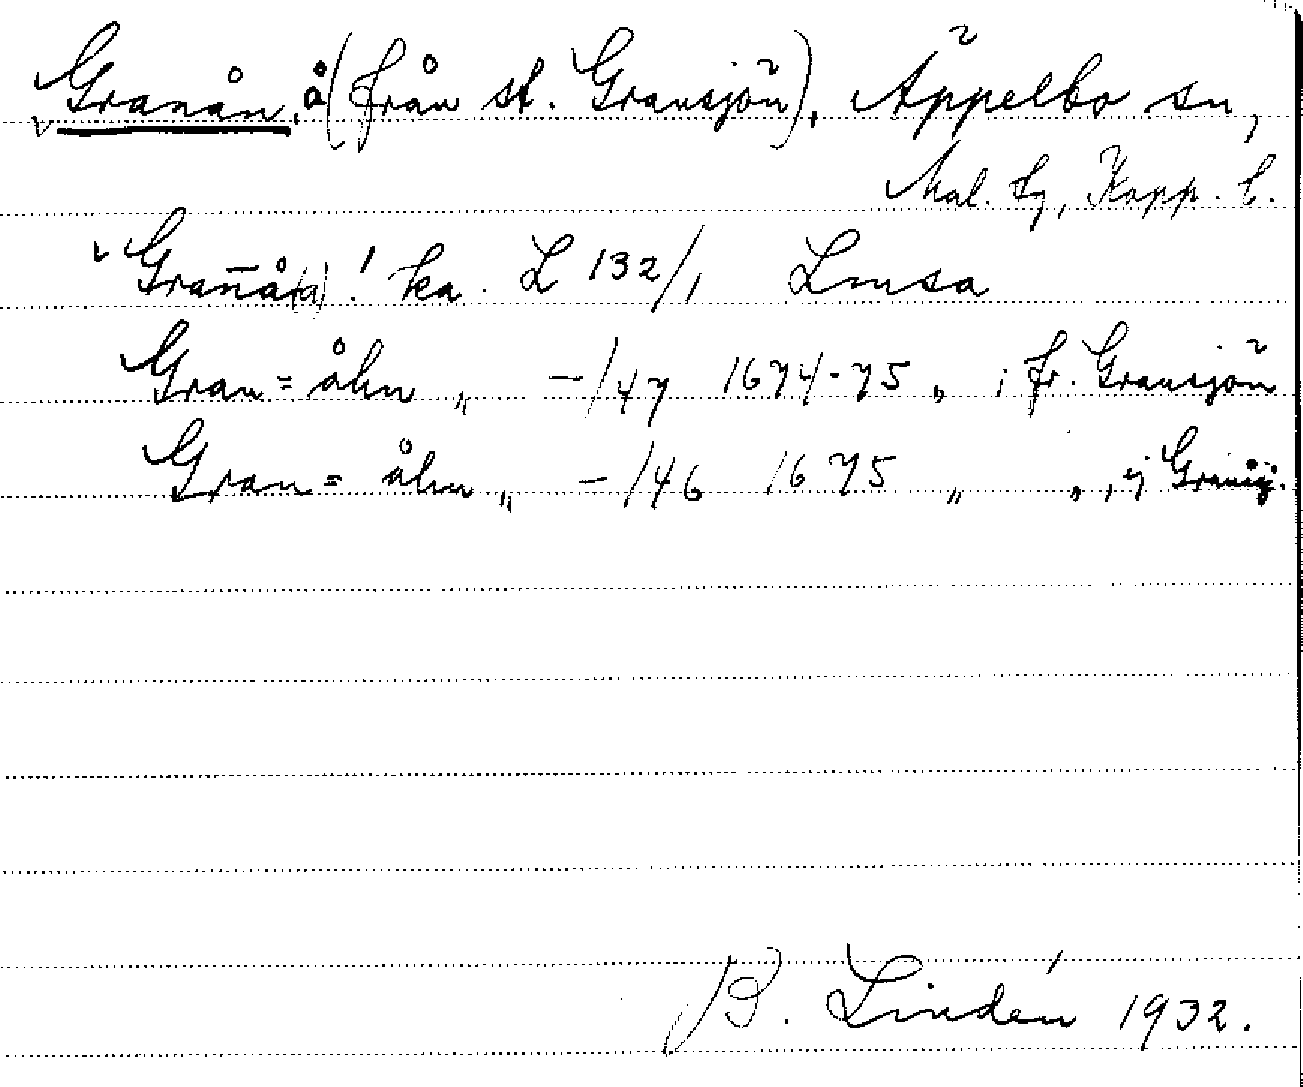 Granån, å (från st. Gransjön), Äppelbo sn,
Mal. tg, Kopp. l.
Granå(a)! ka. L 132/1 Lmsa
Gran= åhn „ -/47 1674-75 „ ; fr. Gransjön
Gran= åhn „ -/46 1675 „ „ , ij Gransj.
B. Lindén 1932.